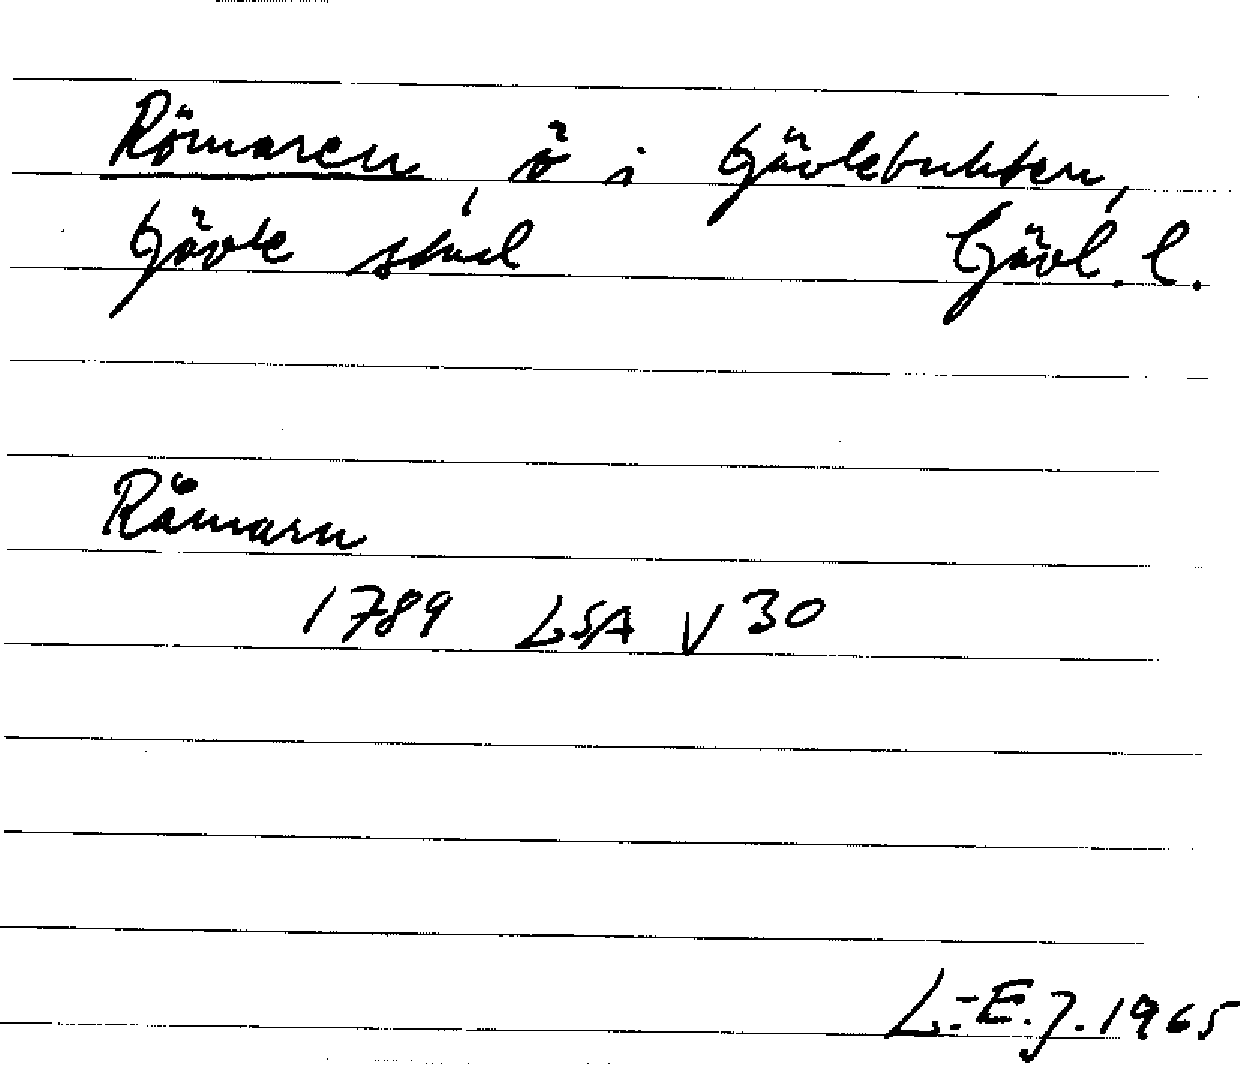 Römaren, ö i Gävlebukten,
Gävle stad Gävl. l.
Råmarn
1789 LSA V 30
L.-E.J. 1965